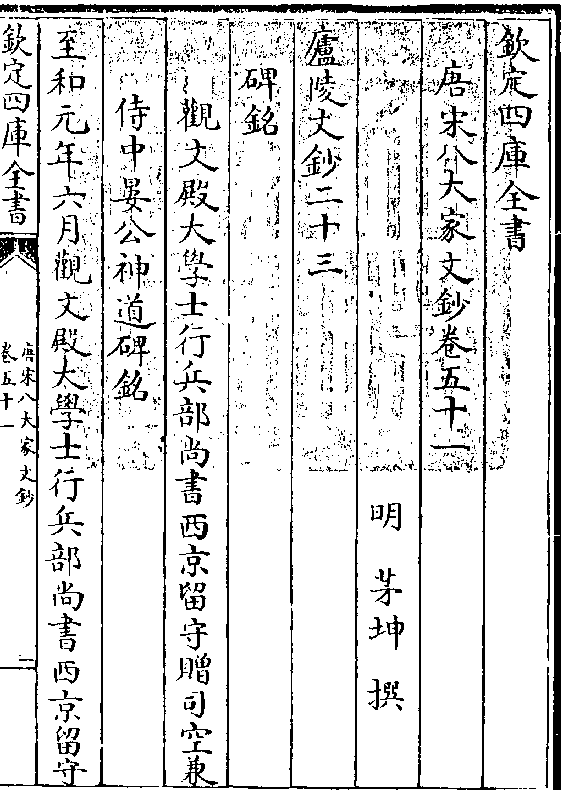 欽定四庫全書
唐宋八大家文鈔卷五十一
明 茅坤 撰
廬陵文鈔二十三
碑銘
觀文殿大學士行兵部尚書西京留守贈司空兼
侍中晏公神道碑銘
至和元年六月觀文殿大學士行兵部尚書西京留守
欽定四庫全書
唐宋八大家文鈔
卷五十一
一